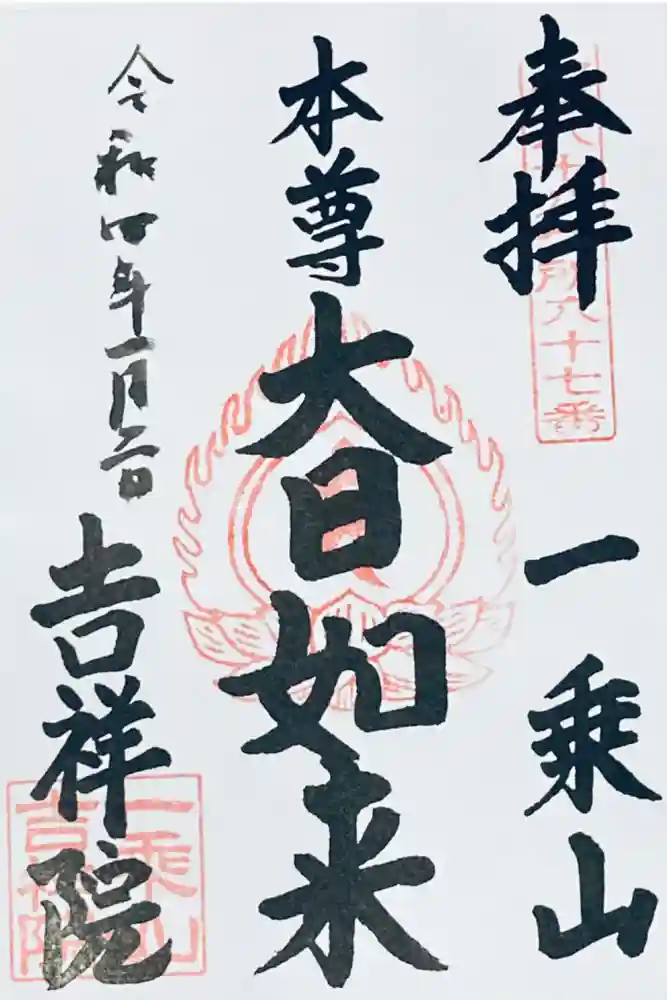 奉拝
一乗山
所六十七番
本尊
大日如来
令和四年一月二日
吉祥院
一乗山
吉祥院